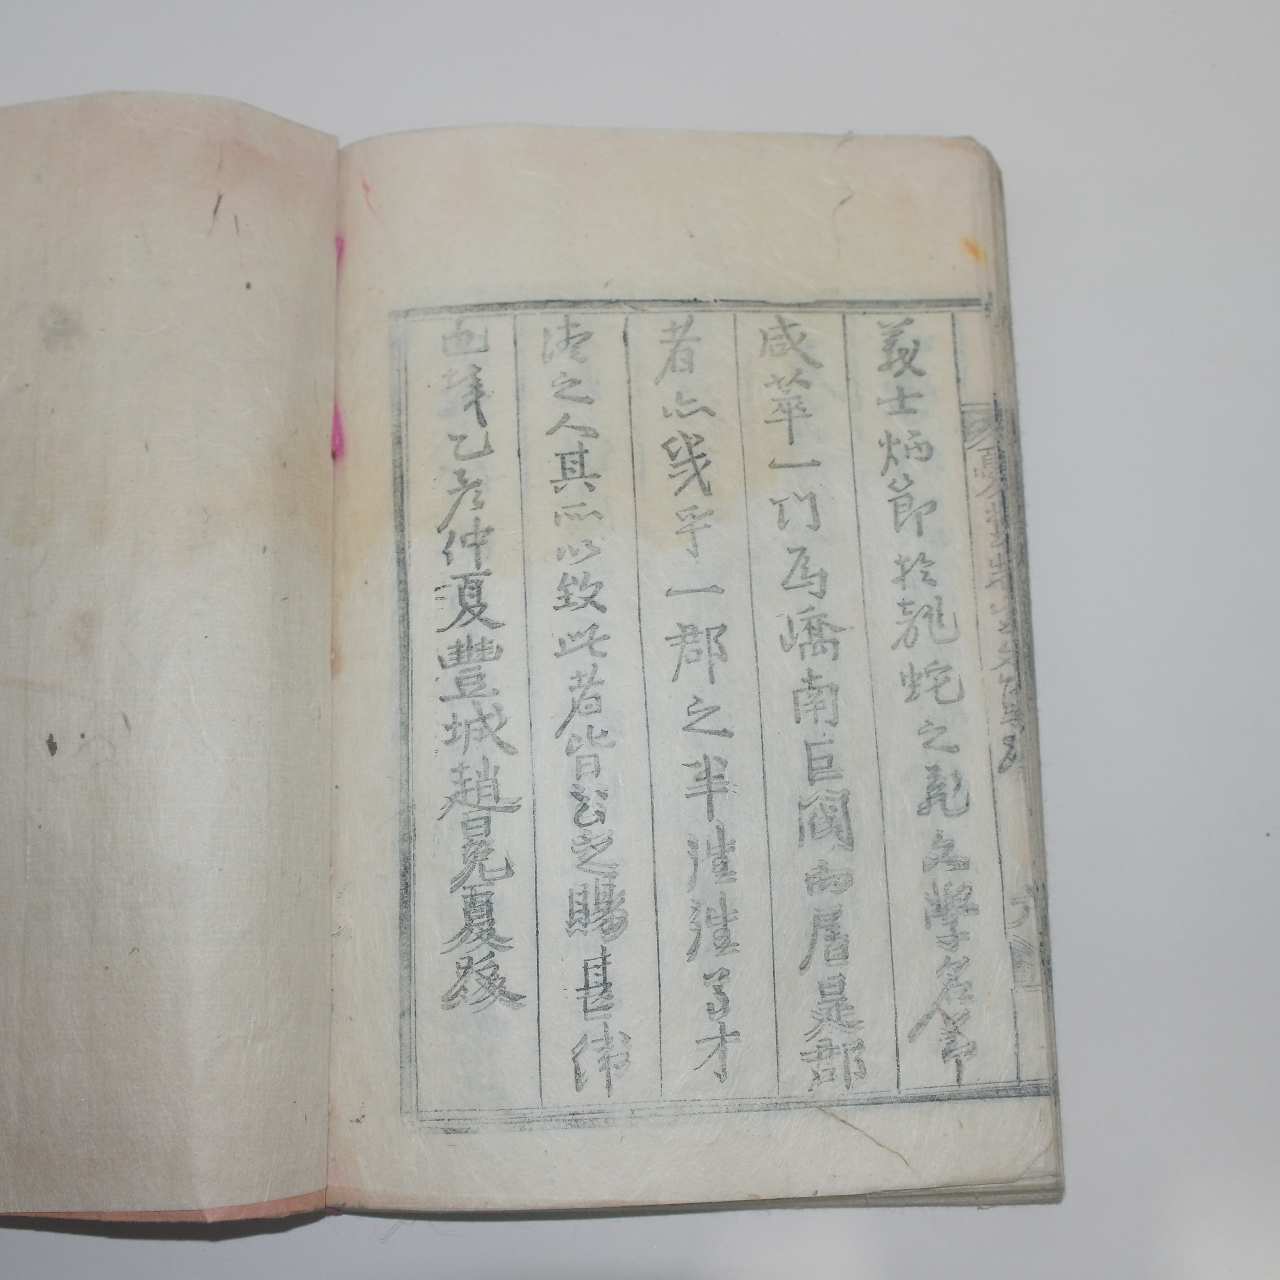 義士炳節於龍蛇之亂文學名節
咸萃一門爲嶠南巨閥而居是郡
者亦幾乎一郡之半洼洼多才
淸之人其所以致此者皆公之賜甚偉
也哉乙亥仲夏豐城趙冕夏跋